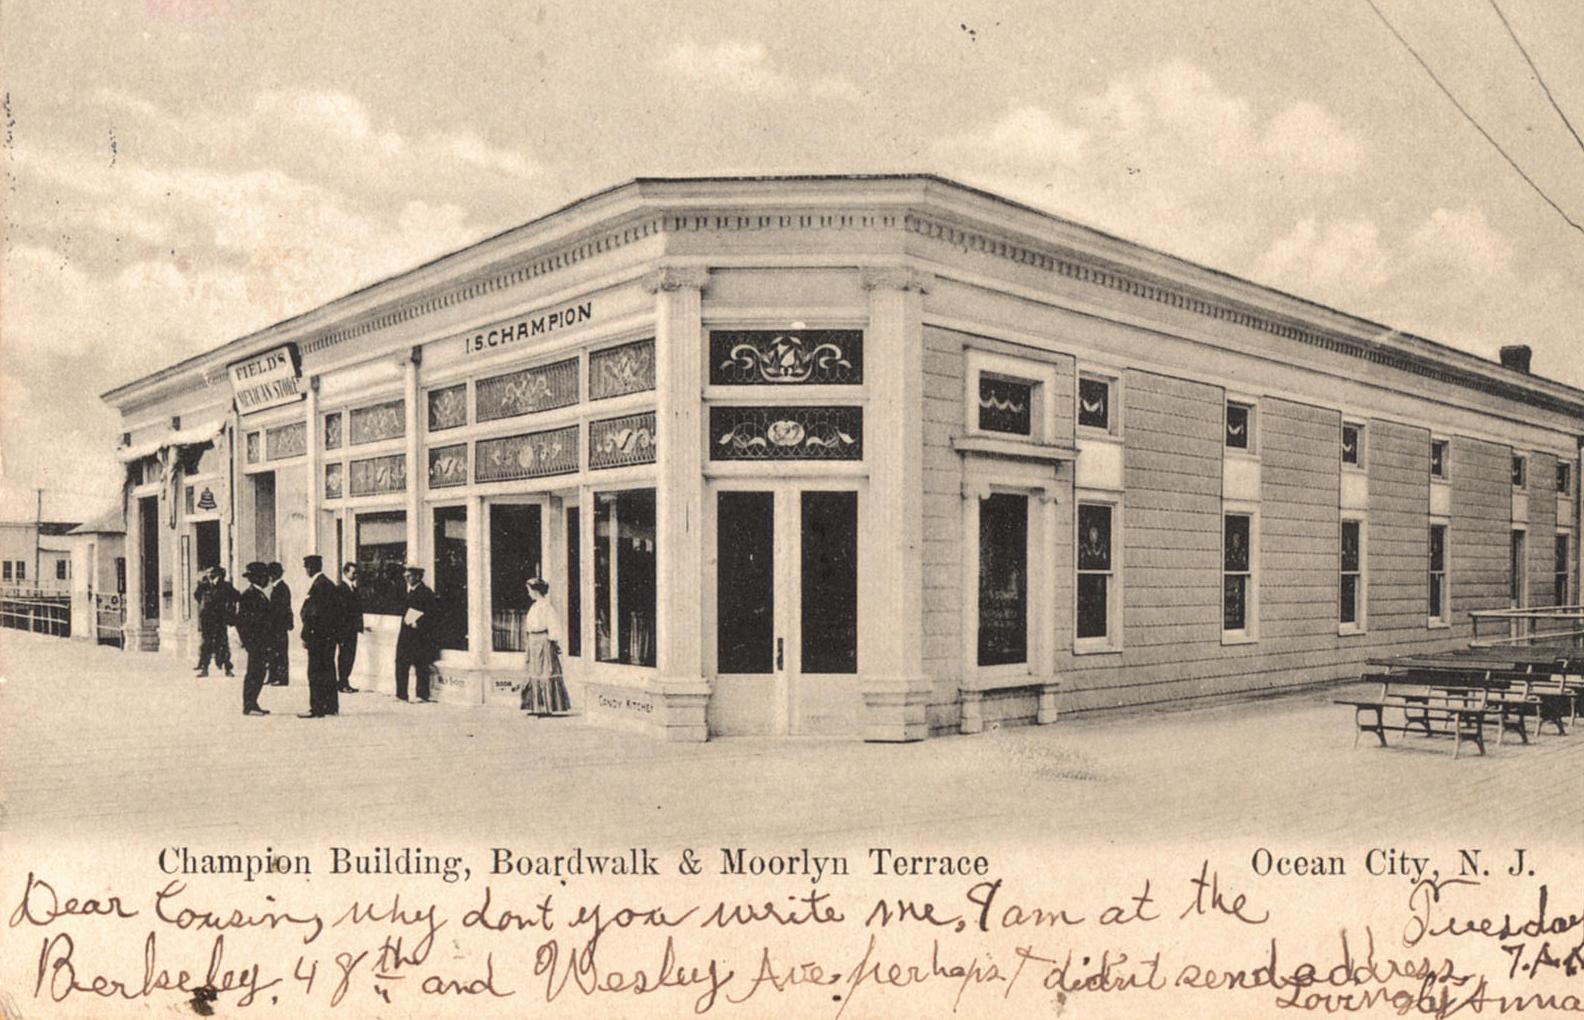 I.S.CHAMPION
FIELD'S
MEXICAN STORE
SODA
CANDY KITCHEN
Champion Building, Boardwalk & Moorlyn Terrace
Ocean City, N. J.
Dear Cousin, why dont you write me, I am at the
Tuesday
Berkeley, 48th and Wesley Ave. perhaps I didn't send address.
7.A.
Lovingly Anna